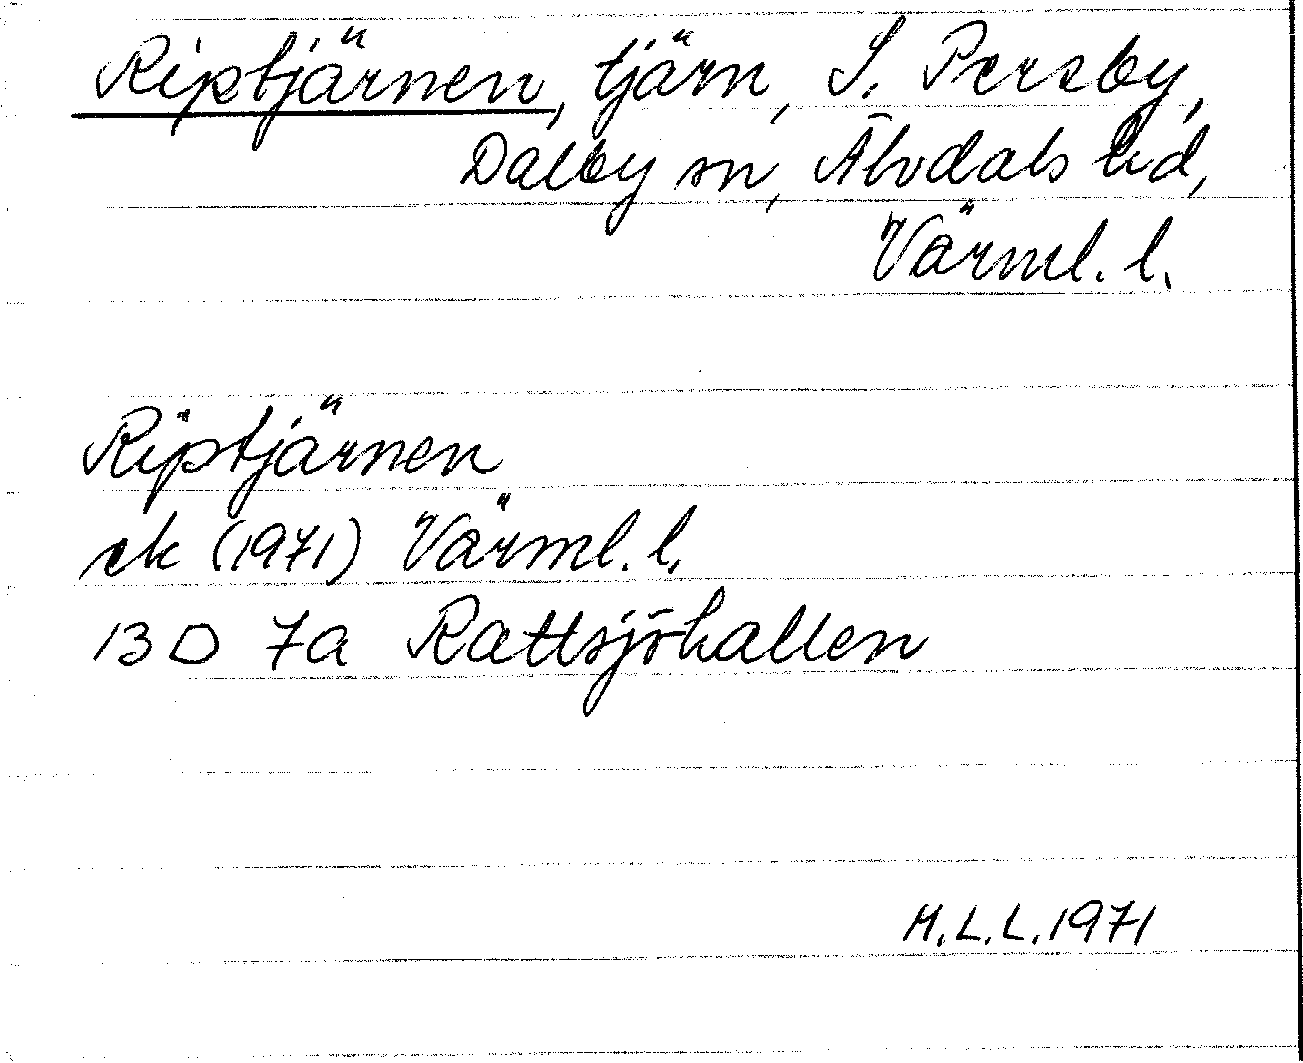 Riptjärnen, tjärn, S. Persby,
Dalby sn, Älvdals hd,
Värml. l.
Riptjärnen
ek (1971) Värml. l.
13 D 7a Rattsjöhallen
M.L.L. 1971